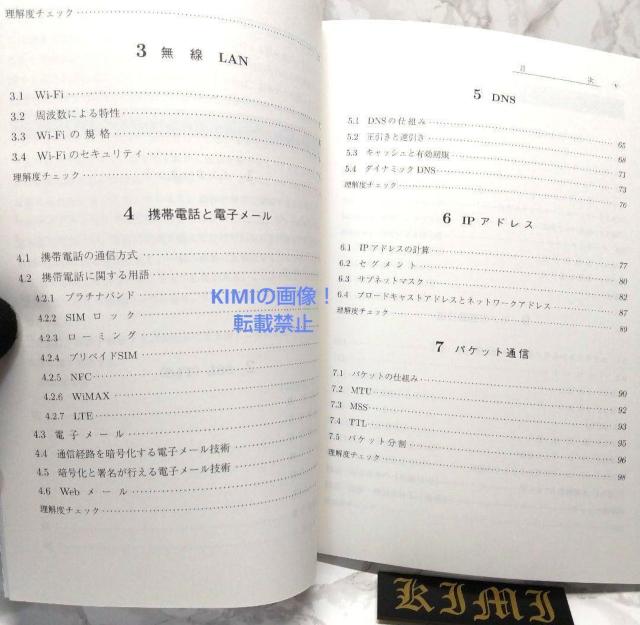 理解度チェック
3 無線 LAN
3.1 Wi-Fi
3.2 周波数による特性
3.3 Wi-Fi の規格
3.4 Wi-Fi のセキュリティ
理解度チェック
4 携帯電話と電子メール
4.1 携帯電話の通信方式
4.2 携帯電話に関する用語
4.2.1 プラチナバンド
4.2.2 SIM ロック
4.2.3 ローミング
4.2.4 プリペイドSIM
4.2.5 NFC
4.2.6 WiMAX
4.2.7 LTE
4.3 電子メール
4.4 通信経路を暗号化する電子メール技術
4.5 暗号化と署名が行える電子メール技術
4.6 Web メール
理解度チェック
目次 v
5 DNS
5.1 DNSの仕組み 65
5.2 正引きと逆引き 68
5.3 キャッシュと有効期限 71
5.4 ダイナミック DNS 73
理解度チェック 76
6 IP アドレス
6.1 IP アドレスの計算 77
6.2 セグメント 80
6.3 サブネットマスク 82
6.4 ブロードキャストアドレスとネットワークアドレス 87
理解度チェック 89
7 パケット通信
7.1 パケットの仕組み 90
7.2 MTU 92
7.3 MSS 93
7.4 TTL 95
7.5 パケット分割 96
理解度チェック 98
KIMIの画像！
転載禁止
KIMI